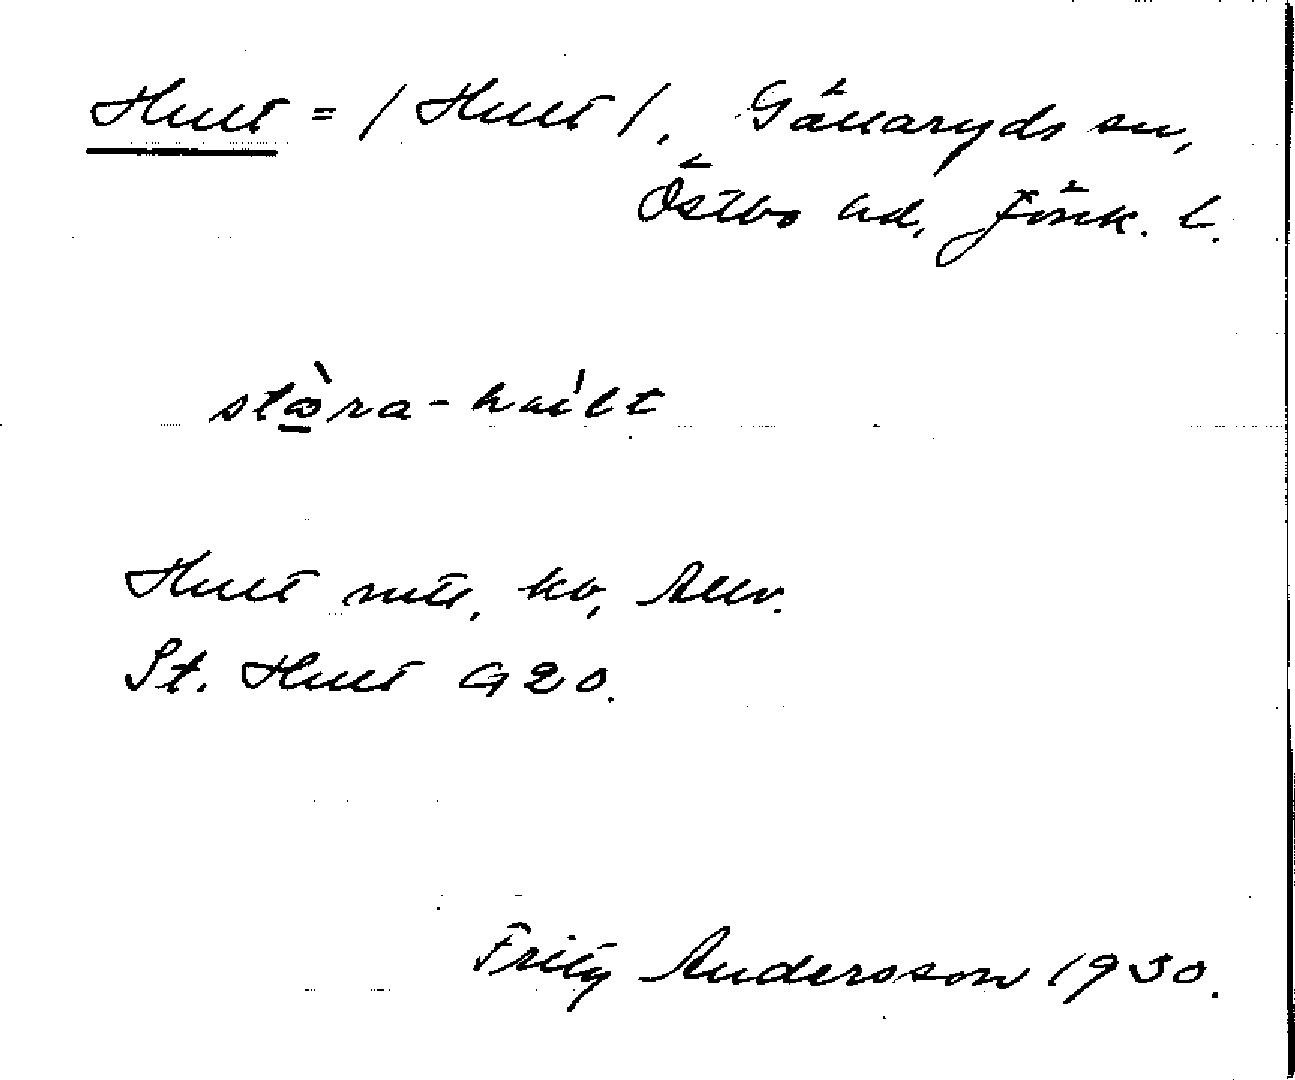 Hult = / Hult /. Gällaryds sn,
Östbo hd, Jönk. l.
stòra-hult
Hult mtl, by, Allv.
St. Hult G20.
Fritz Andersson 1930.